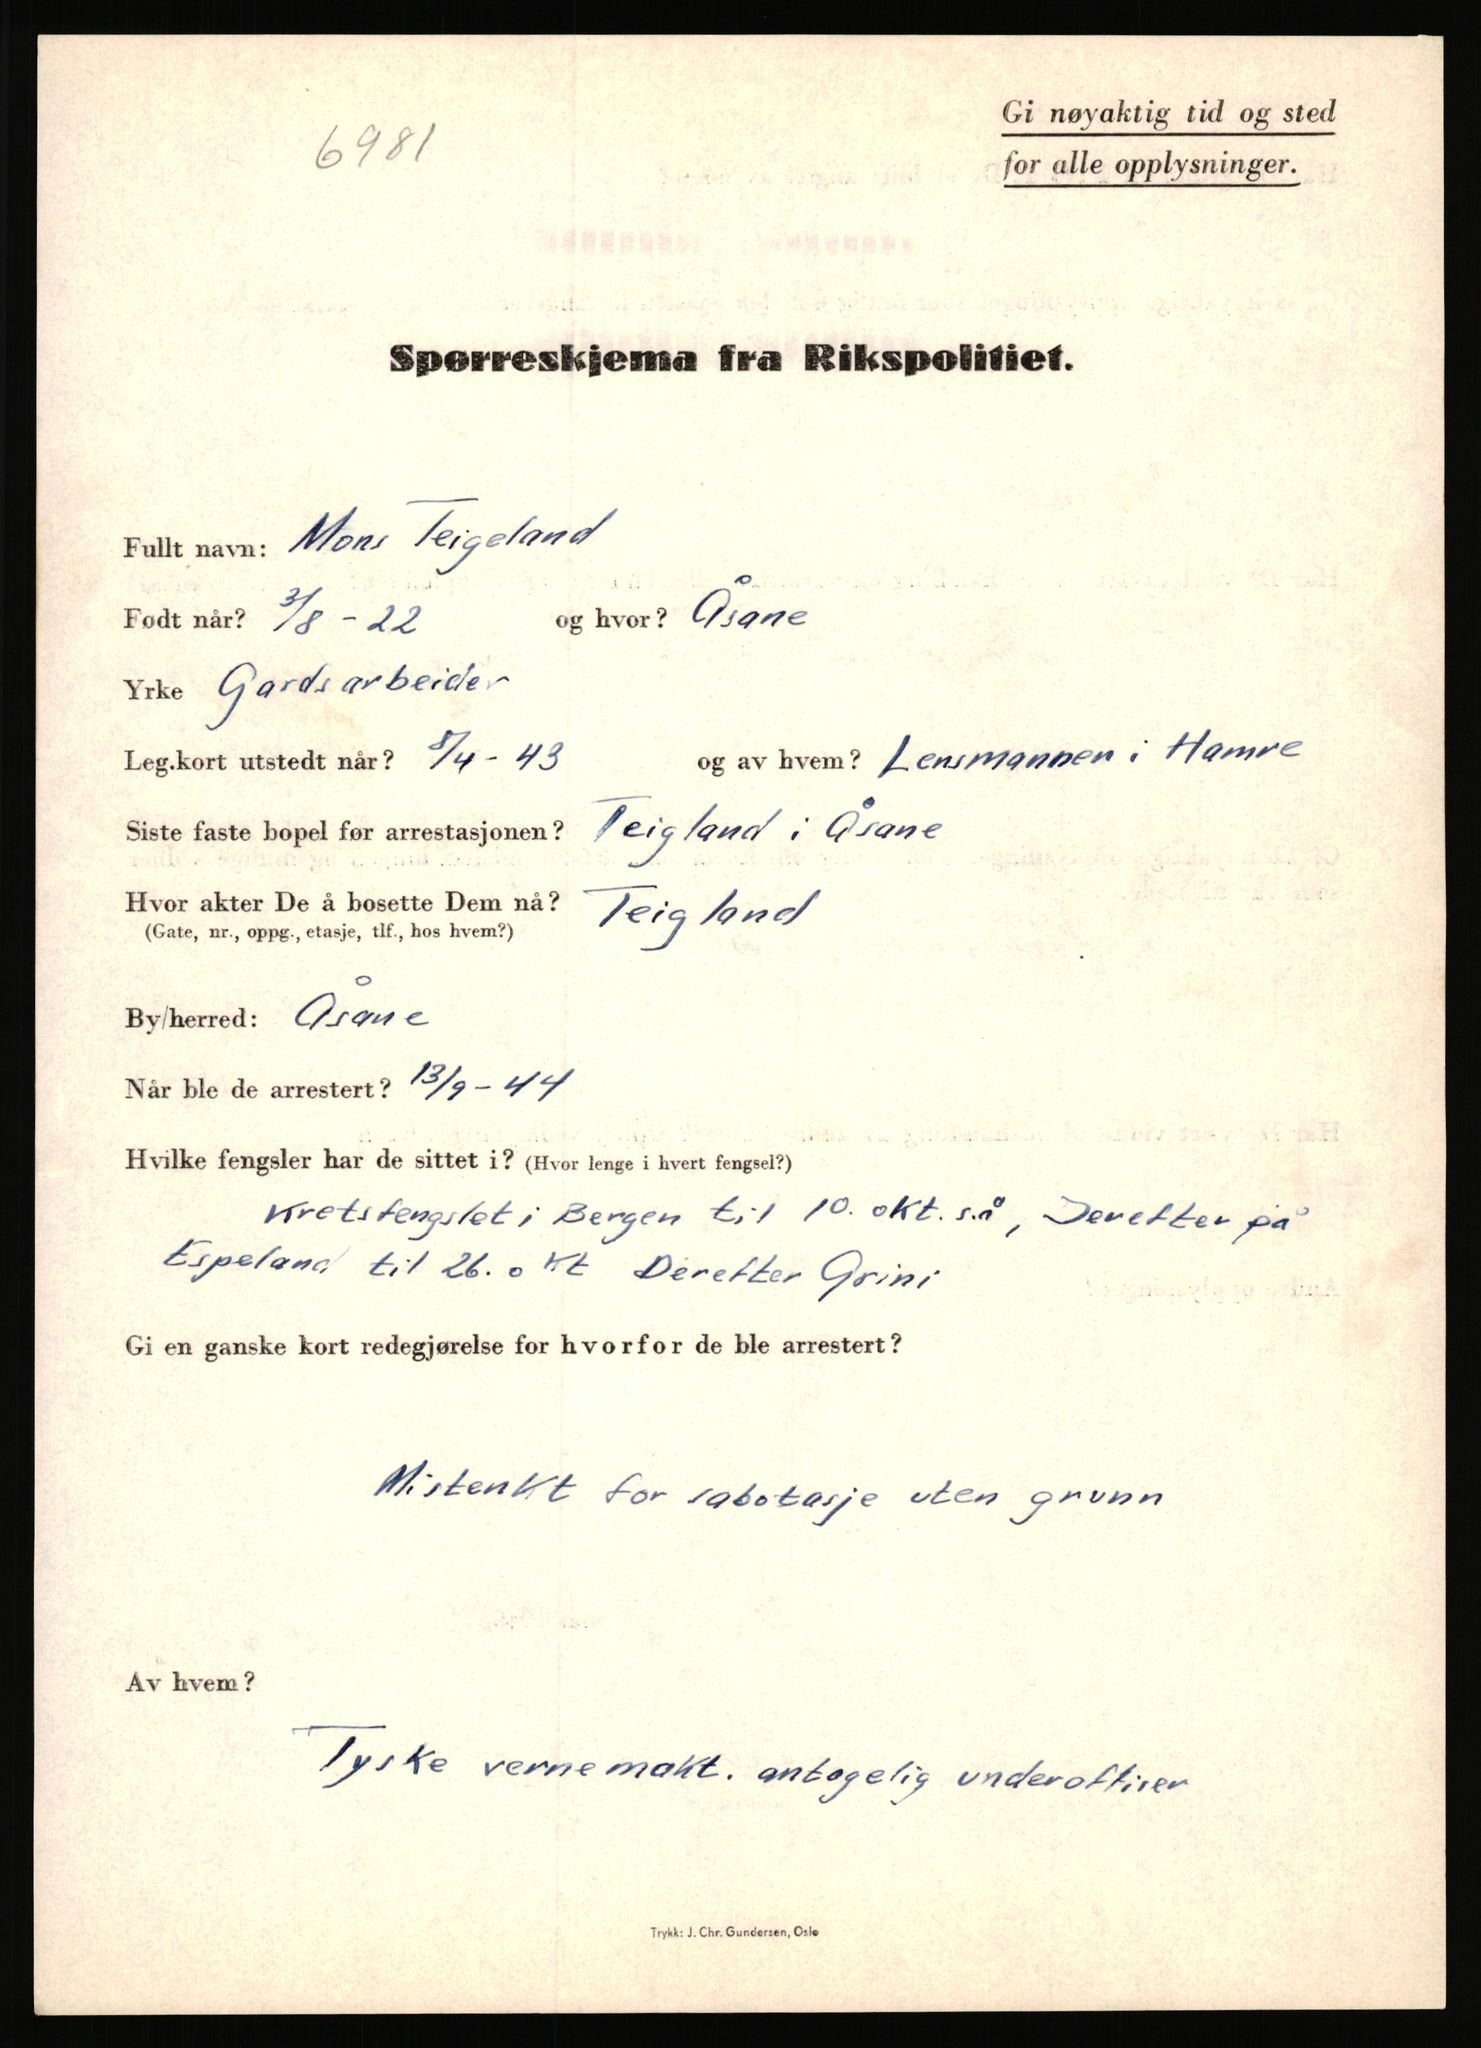 6981
Gi nøyaktig tid og sted
for alle opplysninger.
Spørreskjema fra Rikspolitiet.
Fullt navn: Mons Teigeland
Født når? 3/8 - 22 og hvor? Åsane
Yrke Gardsarbeider
Leg.kort utstedt når? 8/4 - 43 og av hvem? Lensmannen i Hamre
Siste faste bopel før arrestasjonen? Teigland i Åsane
Hvor akter De å bosette Dem nå? Teigland
(Gate, nr., oppg., etasje, tlf., hos hvem?)
By/herred: Åsane
Når ble de arrestert? 13/9 - 44
Hvilke fengsler har de sittet i? (Hvor lenge i hvert fengsel?)
Kretsfengslet i Bergen til 10. okt. s.å, Derefter på
Espeland til 26. okt Derefter Grini
Gi en ganske kort redegjørelse for hvorfor de ble arrestert?
Mistenkt for sabotasje uten grunn
Av hvem?
Tyske vernemakt. antagelig underoffiser
Trykk: J. Chr. Gundersen, Oslo